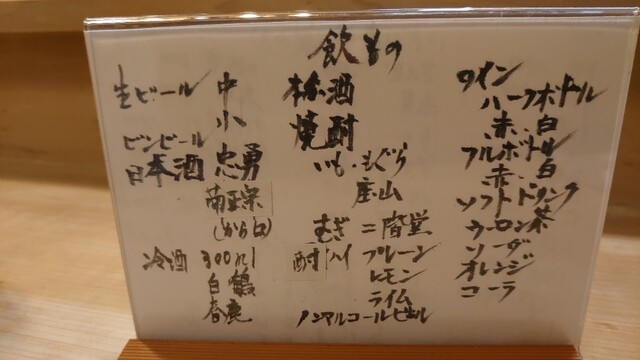 飲もの
生ビール 中
小
ビンビール
日本酒 忠勇
菊正宗
(から口)
冷酒 300ml
白鶴
春鹿
梅酒
焼酎
いも・もぐら
座山
むぎ 二階堂
酎ハイ プレーン
レモン
ライム
ノンアルコールビール
ワイン
ハーフボトル
赤、白
フルボトル
赤、白
ソフトドリンク
ウーロン茶
ソーダ
オレンジ
コーラ